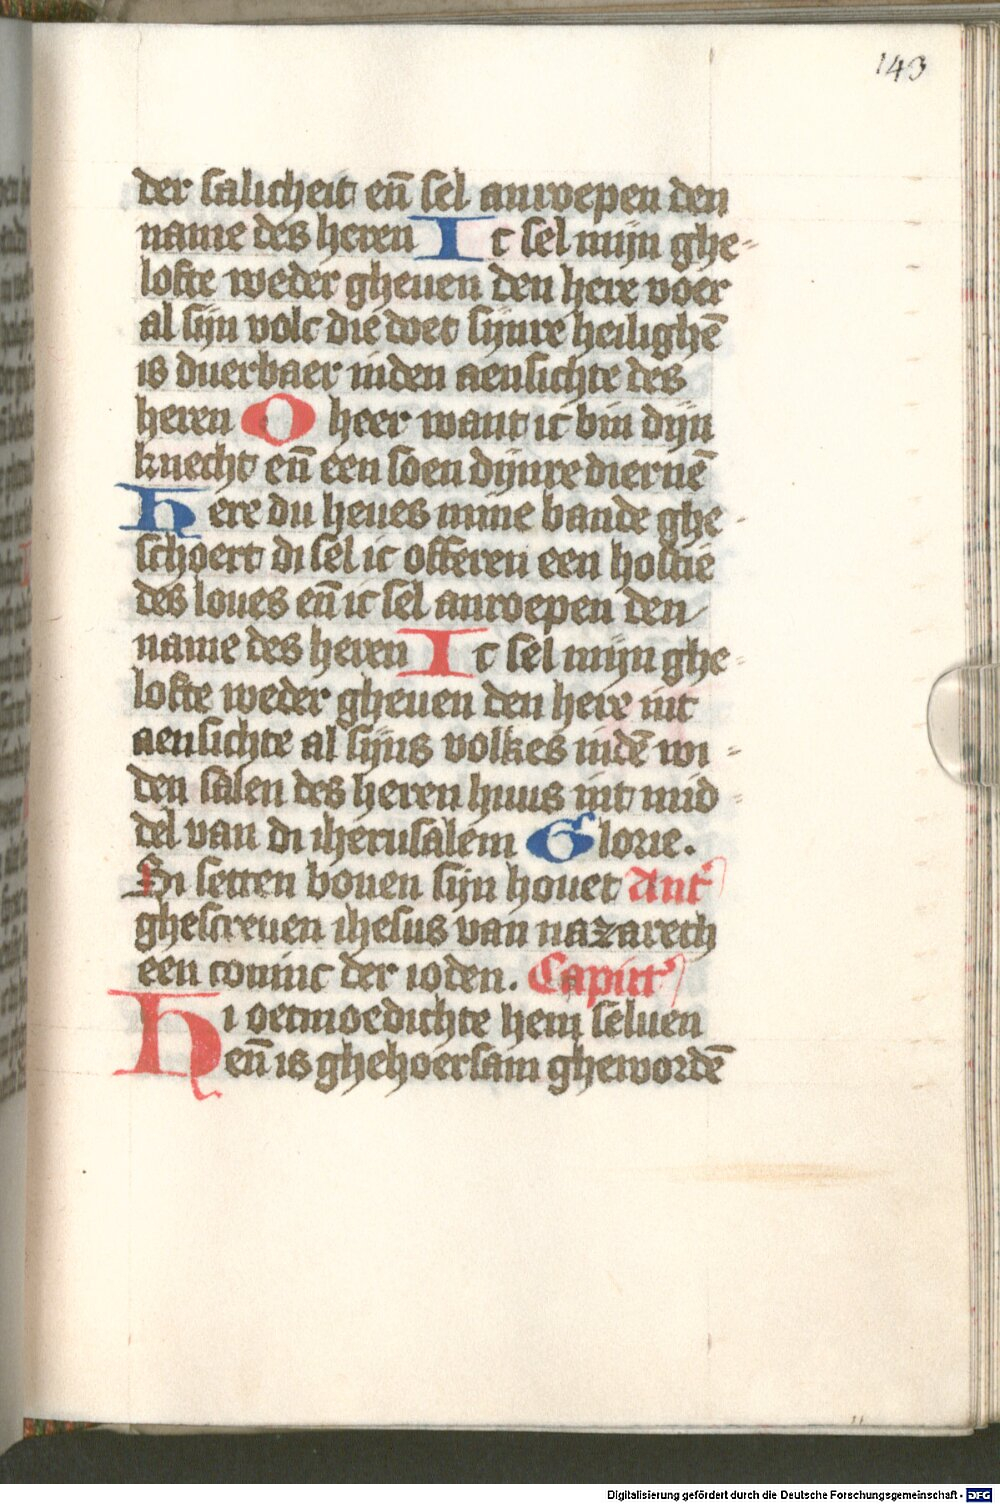 143
der salicheit en̄ sel anroepen den
name des heren Ic sel mijn ghe-
lofte weder gheuen den here voer
al sijn volc die doet sijnre heilighē
is duerbaer inden aensichte des
heren O heer want ic bin dijn
knecht en̄ een soen dijnre diernē
Here du heues mine bande ghe-
schoert di sel ic offeren een hostie
des loues en̄ ic sel anroepen den
name des heren Ic sel mijn ghe-
lofte weder gheuen den here int
aensichte al sijns volkes indē wi-
den salen des heren huus int mid-
del van di iherusalem Glorie.
Si setten bouen sijn houet Ant'
ghescreuen ihesus van nazareth
een coninc der ioden. Capitt'
Hi oetmoedichte hem seluen
en̄ is ghehoersam ghewordē
Digitalisierung gefördert durch die Deutsche Forschungsgemeinschaft - DFG